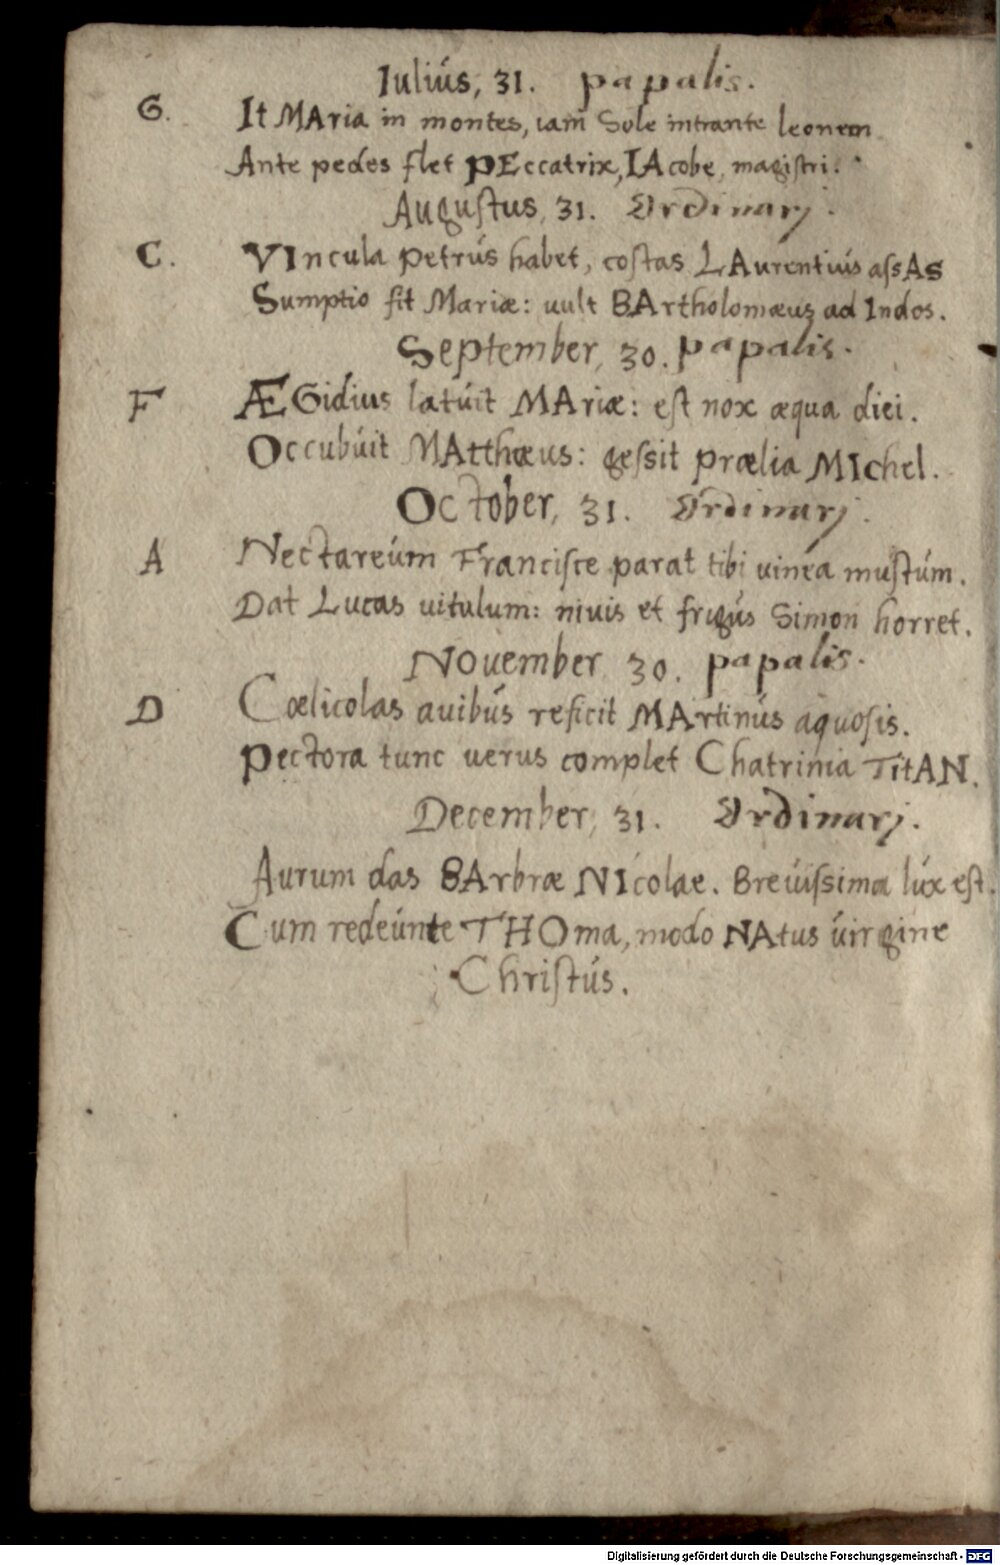 Iulius, 31. papalis.
G. It MAria in montes, iam Sole intrante leonem
Ante pedes flet PEccatrix, IAcobe, magistri.
Augustus, 31. Ordinarj.
C. VIncula Petrús habet, costas LAurentius assAs
Sumptio fit Mariæ: uult BArtholomæus ad Indos.
September, 30. papalis.
F ÆGidius latúit MAriæ: est nox æqua diei.
Occubúit MAtthæus: gessit prælia MIchel.
October, 31. Ordinarj.
A Nectareúm Francisce parat tibi uinea mustúm.
Dat Lucas uitulum: niuis et frigús Simon horret.
November 30. papalis.
D Cœlicolas auibús reficit MArtinús aquosis.
Pectora tunc uerus complet Chatrinia TitAN.
December, 31. Ordinarj.
Aurum das BArbræ NIcolae. Breuissima lúx est.
Cum redeúnte THOma, modo NAtus uirgine
Christús.
Digitalisierung gefördert durch die Deutsche Forschungsgemeinschaft - DFG